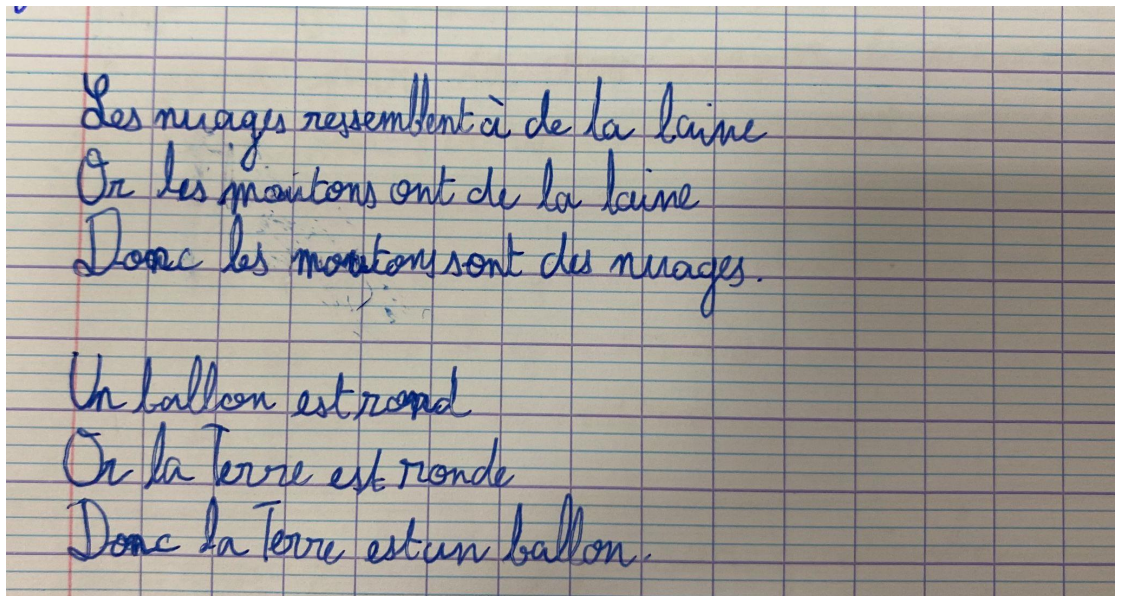 Les nuages ressemblent à de la laine
Or les moutons ont de la laine
Donc les moutons sont des nuages.
Un ballon est rond
Or la Terre est ronde
Donc la Terre est un ballon.